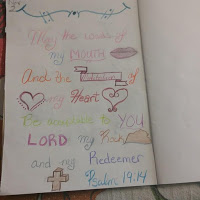 May the words of
my MOUTH
And the Meditation of
my Heart
Be acceptable to YOU
LORD my Rock
and my Redeemer
Psalm 19:14